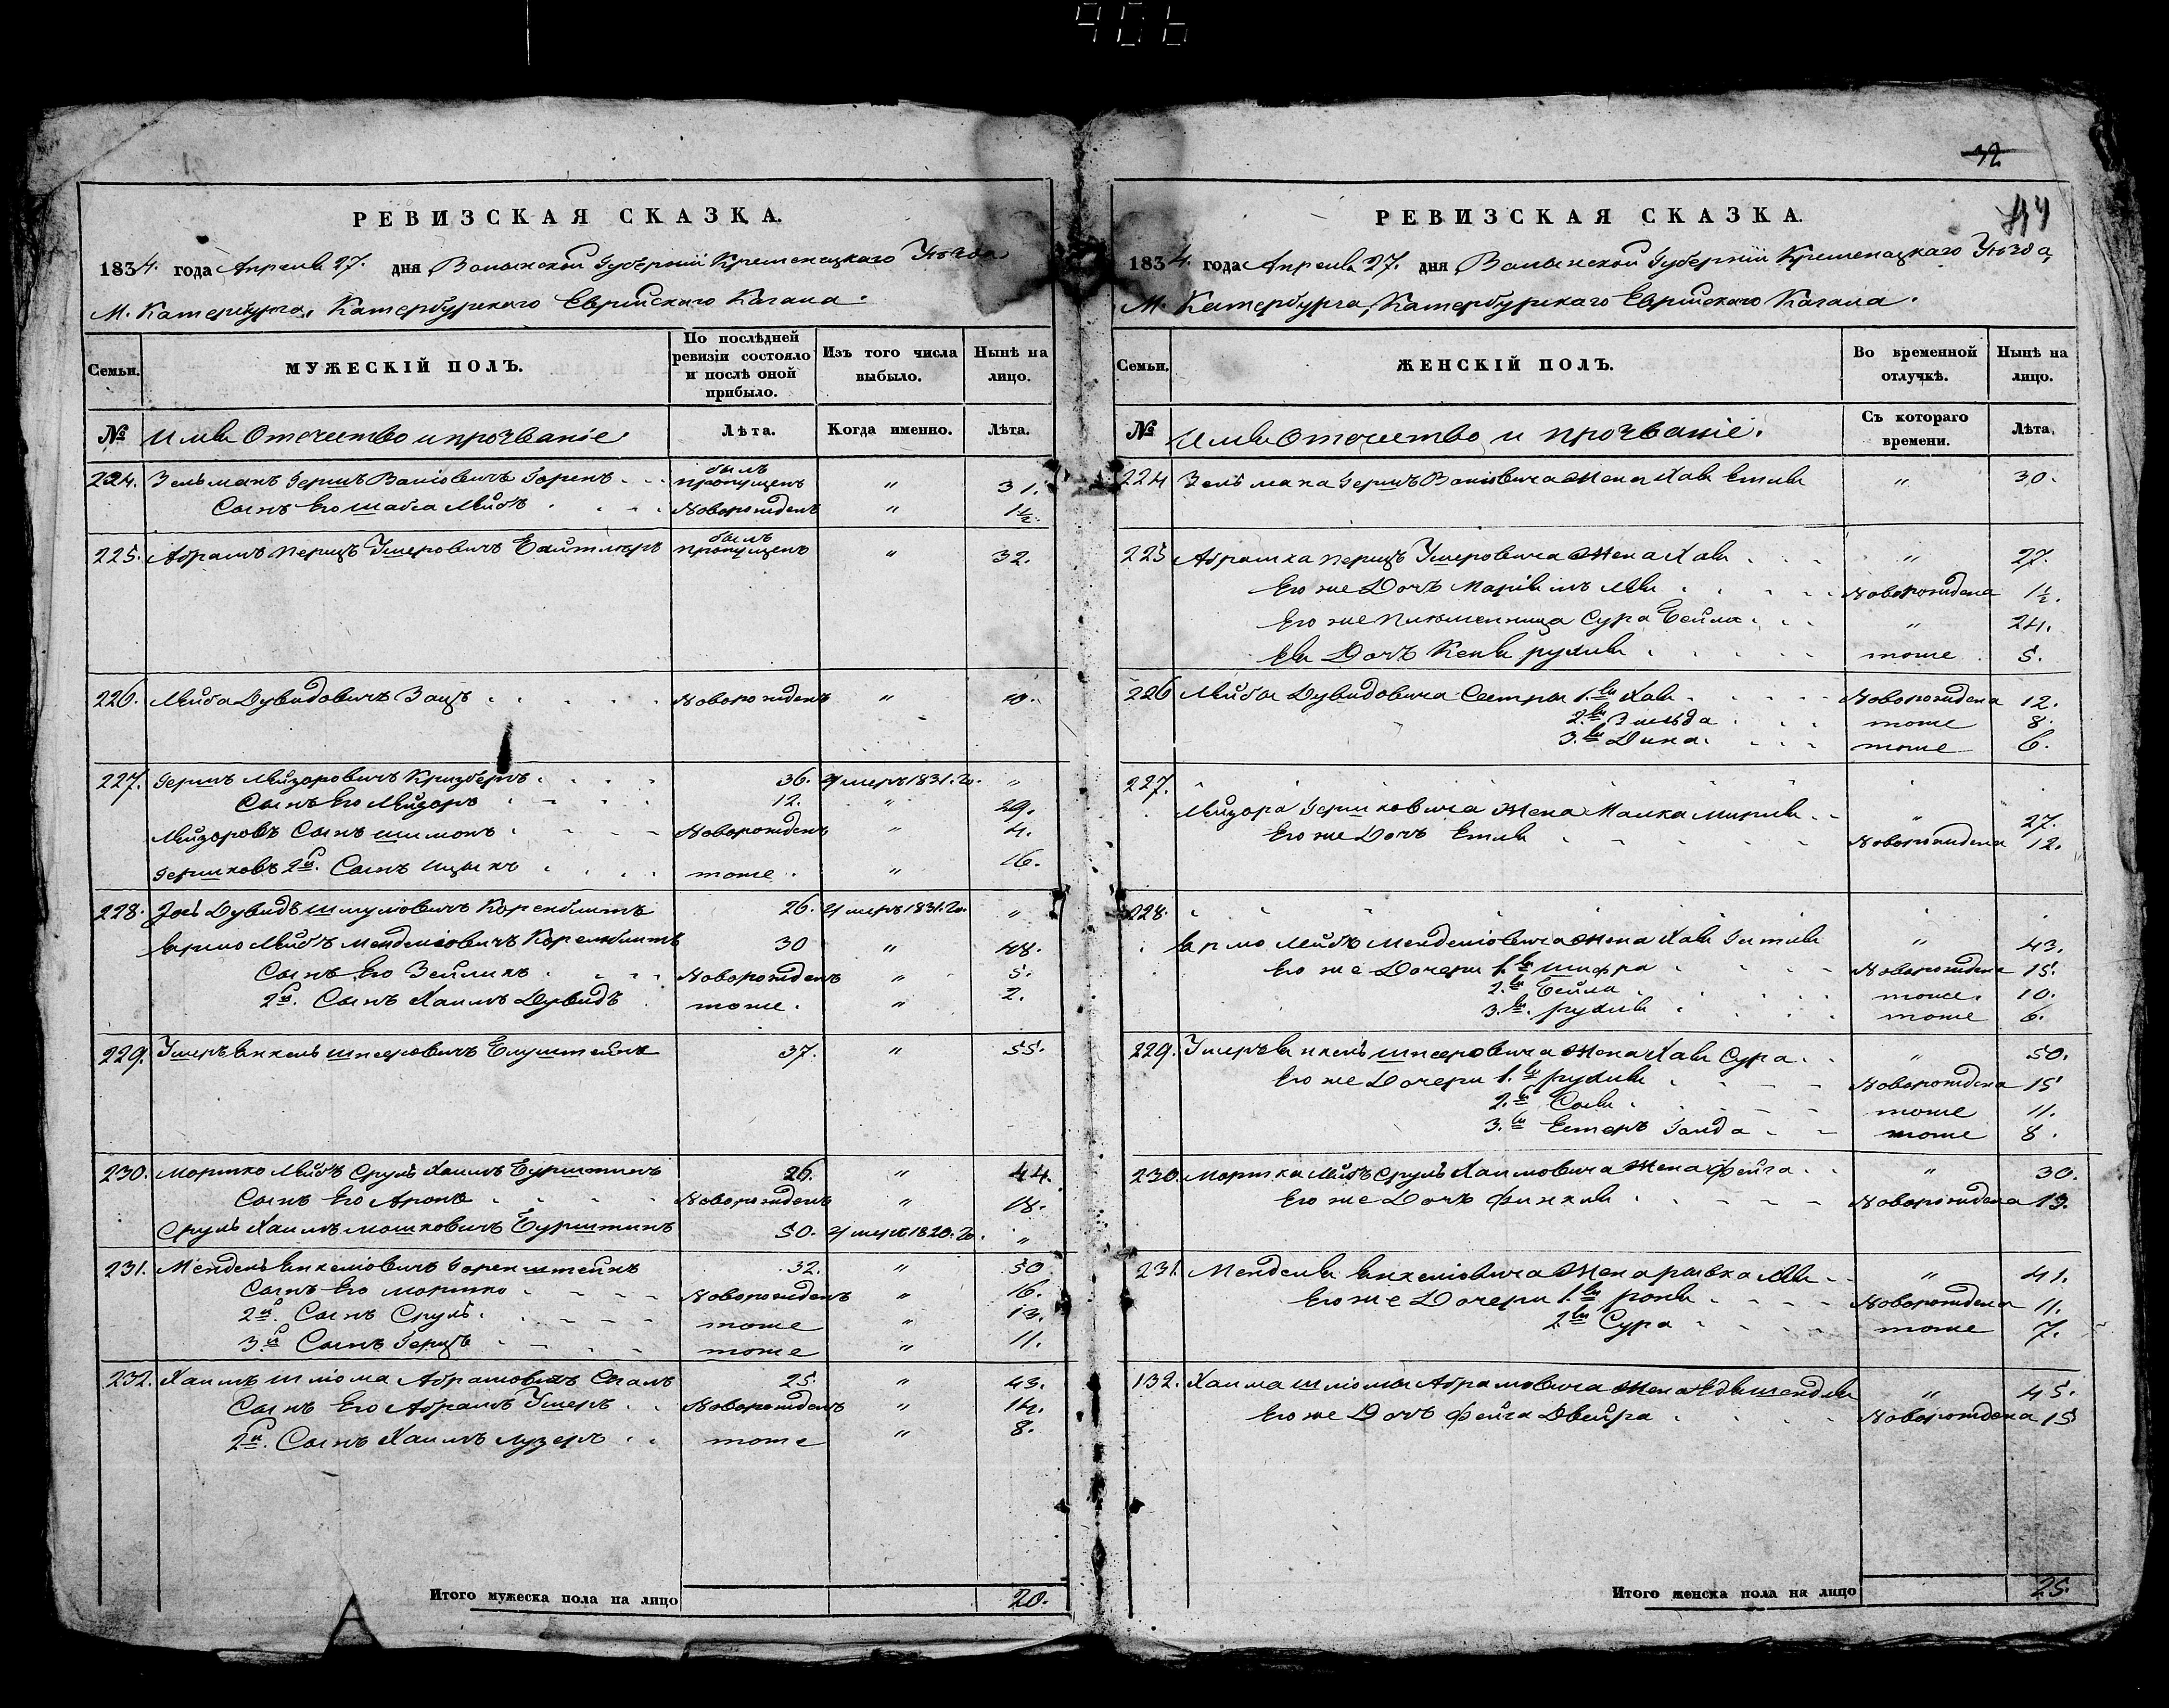 906
РЕВИЗСКАЯ СКАЗКА.
1834. года Апреля 27. дня Волынской Губерніи Кременецкаго Уѣзда
М. Катербурга, Катербурского Еврейскаго Кагала.
Семьи. МУЖЕСКІЙ ПОЛЪ. По послѣдней ревизіи состояло и послѣ оной прибыло. Изъ того числа выбыло. Нынѣ на лицо.
№ Имя Отечество и прозваніе Лѣта. Когда именно. Лѣта.
224. Зельманъ Гершъ Горенъ былъ пропущенъ " 31.
Сынъ Его Шабса Лейбъ Новорожденъ " 1½.
225. Абрамъ Перецъ Ушеровичъ былъ пропущенъ " 32.
226. Лейба Дувидовичъ Зацъ Новорожденъ "
227. Гершъ Лейзоровичъ Кризберъ 36. Умеръ 1831. го. "
Сынъ Его Лейзоръ 12. " 29.
Лейзоровъ Сынъ Шимонъ Новорожденъ " 4.
Гершковъ 2й. Сынъ Ицыкъ тоже. " 16.
228. Дувидъ Шмулович Коренблитъ 26. Умеръ 1831. го. "
Ярмо Лейбъ Менделіовичъ Коренблитъ 30 " 48.
Сынъ Его Зейликъ Новорожденъ " 5.
2й. Сынъ Хаимъ Дувидъ тоже. " 2.
229. Ушеръ Янкель Елуштейнъ 37. " 55.
230. Моршко Лейбъ Сруль Хаимъ Бурштинъ 26. " 44.
Сынъ Его Аронъ Новорожденъ " 18.
Сруль Хаимъ Мошковичъ Бурштинъ 50. Умеръ 1820. го. "
231. Мендель Янкеліовичъ Горенштейнъ 32. " 50
Сынъ Его Моршко Новорожденъ " 16.
2й. Сынъ Сруль. тоже " 13.
3й Сынъ Герцъ тоже " 11.
232. Хаимъ Шліома Абрамовичъ 25. " 43.
Сынъ Его Абрамъ Ушеръ Новорожденъ " 14.
2й. Сынъ Хаимъ Лузеръ тоже " 8.
Итого мужеска пола на лицо 20.
32
44
РЕВИЗСКАЯ СКАЗКА.
1834. года Апреля 27. дня Волынской Губерніи Кременецкаго Уѣзда,
М. Катербурга, Катербурскаго Еврейскаго Кагала.
Семьи. ЖЕНСКІЙ ПОЛЪ. Во временной отлучкѣ. Нынѣ на лицо.
№ Имя Отечество и прозваніе. Съ котораго времени. Лѣта.
224 Зельмана Гершъ Жена Хая Етля " 30.
225 Абрамка Перецъ Ушеровича Жена Хая " 27.
Его же Дочь Маріямъ Лея Новорождена 1½.
Его же Племенница Сура Бейла " 24.
Ея Дочь Кеня Рухля тоже 5.
226 Лейбы Дувидовича Сестры 1.я Хая Новорождена 12.
2.я Зисльда тоже 8.
3.я Дина. тоже 6.
227.
Лейзора Гершковича Жена Малка Мирля " 27.
Его же Дочь Етля Новорождена 12.
228.
Ярмо Лейбъ Менделіовича Жена Хая Гитля " 43.
Его же Дочери 1.я Шифра Новорождена 15.
2.я Бейла тоже. 10.
3.я. Рухля тоже 6.
229. Ушеръ Янкель Жена Хая Сура " 50.
Его же Дочери 1.я Рухля Новорождена 15
2.я Сося тоже 11.
3.я Естеръ Голда тоже 8.
230. Моршка Лейбъ Сруль Хаимовича Жена Фейга " 30.
Его же Дочь Финкля Новорождена 13.
231. Менделя Янкеліовича Жена Рывка Лея " 41.
Его же Дочери 1.я Рохля Новорождена 11.
2.я Сура тоже 7.
132. Хаима Шліомы Абрамовича Жена " 45.
Его же Дочь Фейга Двейра Новорождена 15
Итого женска пола на лицо 25.